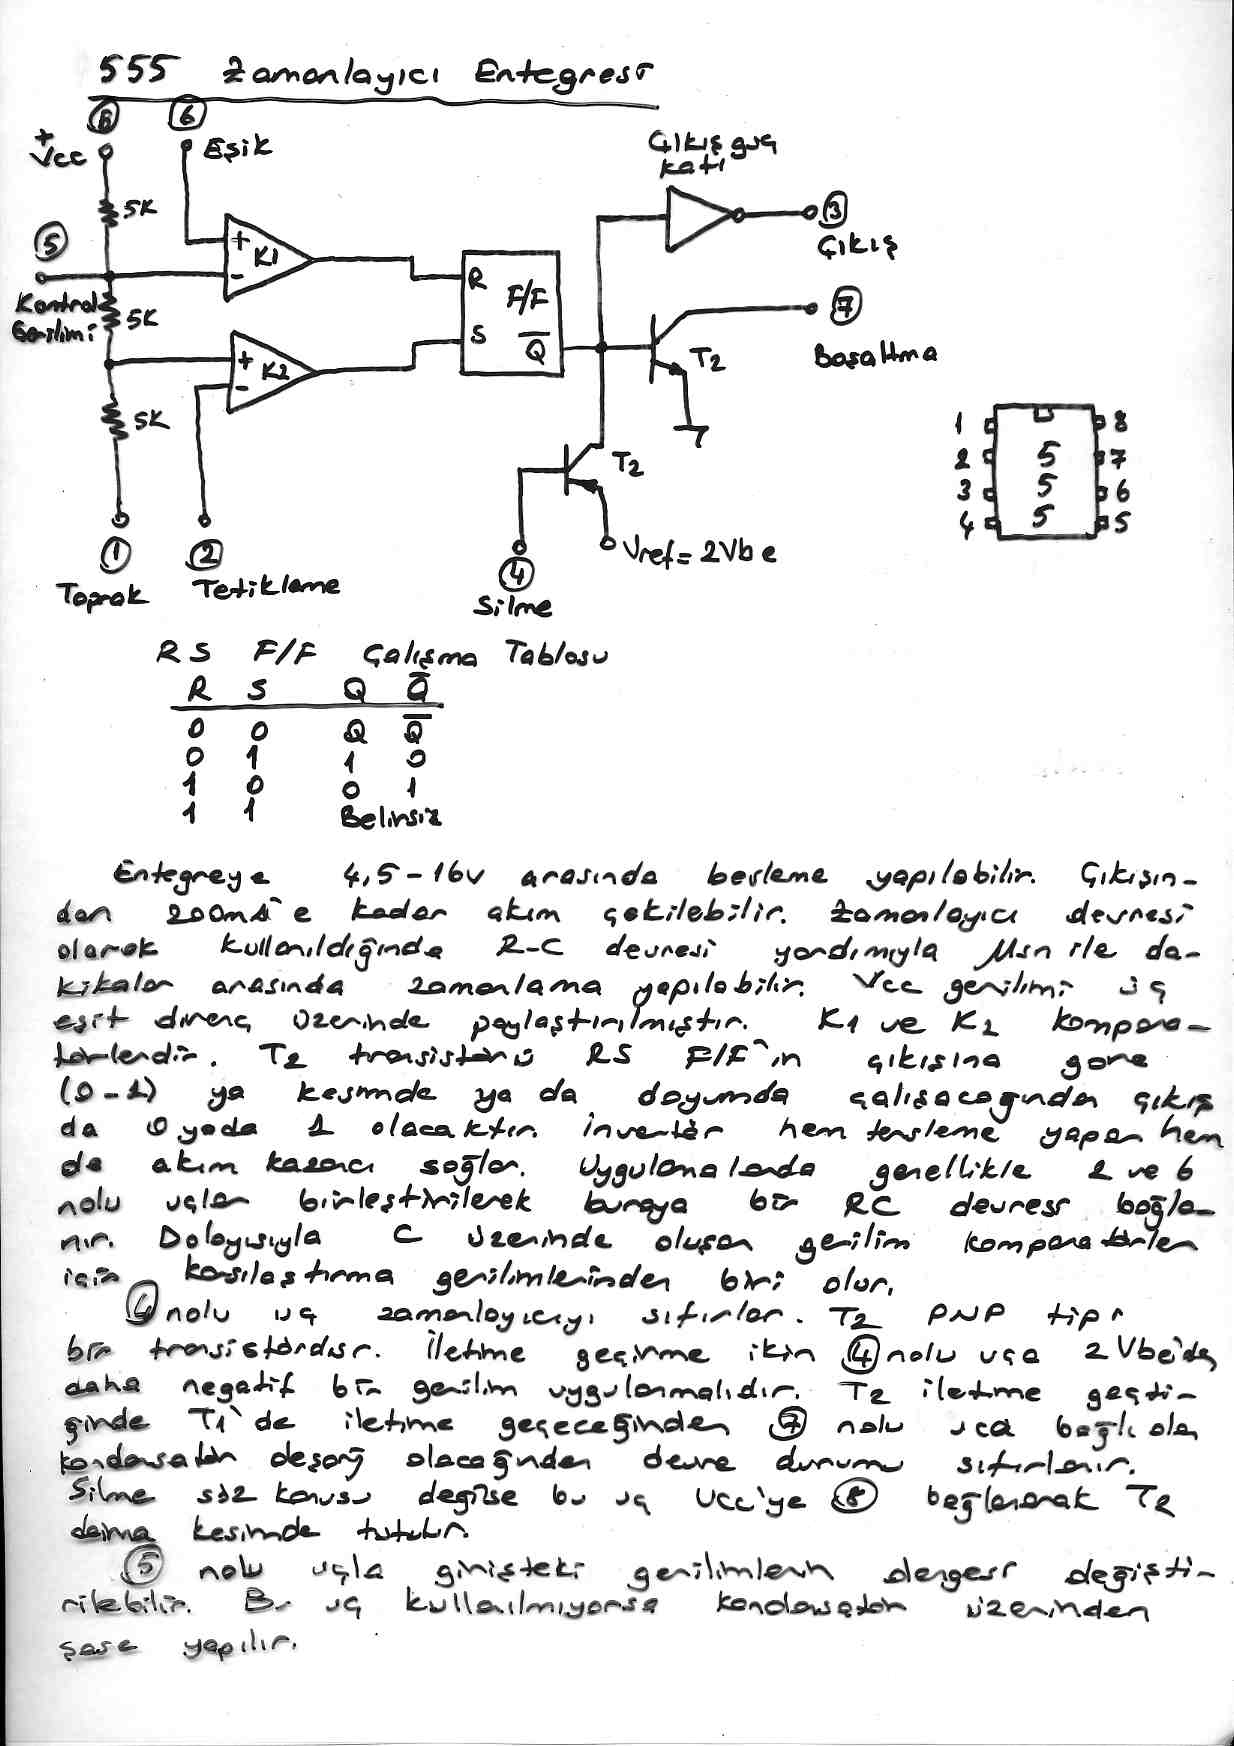 555 Zamanlayıcı Entegresi
8
6
+
Vcc
Eşik
Çıkış güç
katı
5K
5
+
K1
-
3
Çıkış
Kontrol
Gerilimi
5K
R
F/F
S
Q̅
7
Boşaltma
T2
+
K2
-
5K
1 8
2 5 7
3 5 6
4 5 5
T2
Vref=2Vbe
1
2
4
Toprak
Tetikleme
Silme
RS F/F Çalışma Tablosu
R S Q Q̅
0 0 Q Q̅
0 1 1 0
1 0 0 1
1 1 Belirsiz
Entegreye 4,5-16v arasında besleme yapılabilir. Çıkışın-
dan 200mA'e kadar akım çekilebilir. Zamanlayıcı devresi
olarak kullanıldığında R-C devresi yardımıyla Msn ile da-
kikalar arasında zamanlama yapılabilir. Vcc gerilimi üç
eşit direnç üzerinde paylaştırılmıştır. K1 ve K2 kompara-
törlerdir. T2 transistörü RS F/F'ın çıkışına göre
(0-1) ya kesimde ya da doyumda çalışacağından çıkış
da 0 yada 1 olacaktır. inverter hem tersleme yapar hem
de akım kazancı sağlar. Uygulamalarda genellikle 2 ve 6
nolu uçlar birleştirilerek buraya bir RC devresi bağla-
nır. Dolayısıyla C üzerinde oluşan gerilim komparatörler
için karşılaştırma gerilimlerinden biri olur.
4 nolu uç zamanlayıcıyı sıfırlar. T2 PNP tipi
bir transistördür. İletime geçirme için 4 nolu uca 2Vbe'de
daha negatif bir gerilim uygulanmalıdır. T2 iletime geçti-
ğinde T1'de iletime geçeceğinden 7 nolu uca bağlı olan
kondansatör deşarj olacağından devre durumu sıfırlanır.
Silme söz konusu değilse bu uç Vcc'ye 8 bağlanarak T2
daima kesimde tutulur.
5 nolu uçla girişteki gerilimlerin dengesi değişti-
rilebilir. Bu uç kullanılmıyorsa kondansatör üzerinden
şase yapılır.